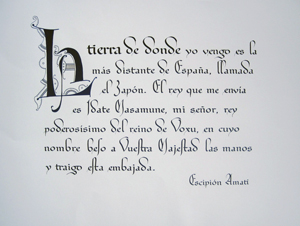 La tierra de donde yo vengo es la
más distante de España, llamada
el Zapón. El rey que me envía
es Idate Masamune, mi señor, rey
poderosísimo del reino de Voxu, en cuyo
nombre beso a Vuestra Majestad las manos
y traigo esta embajada.
Escipión Amati